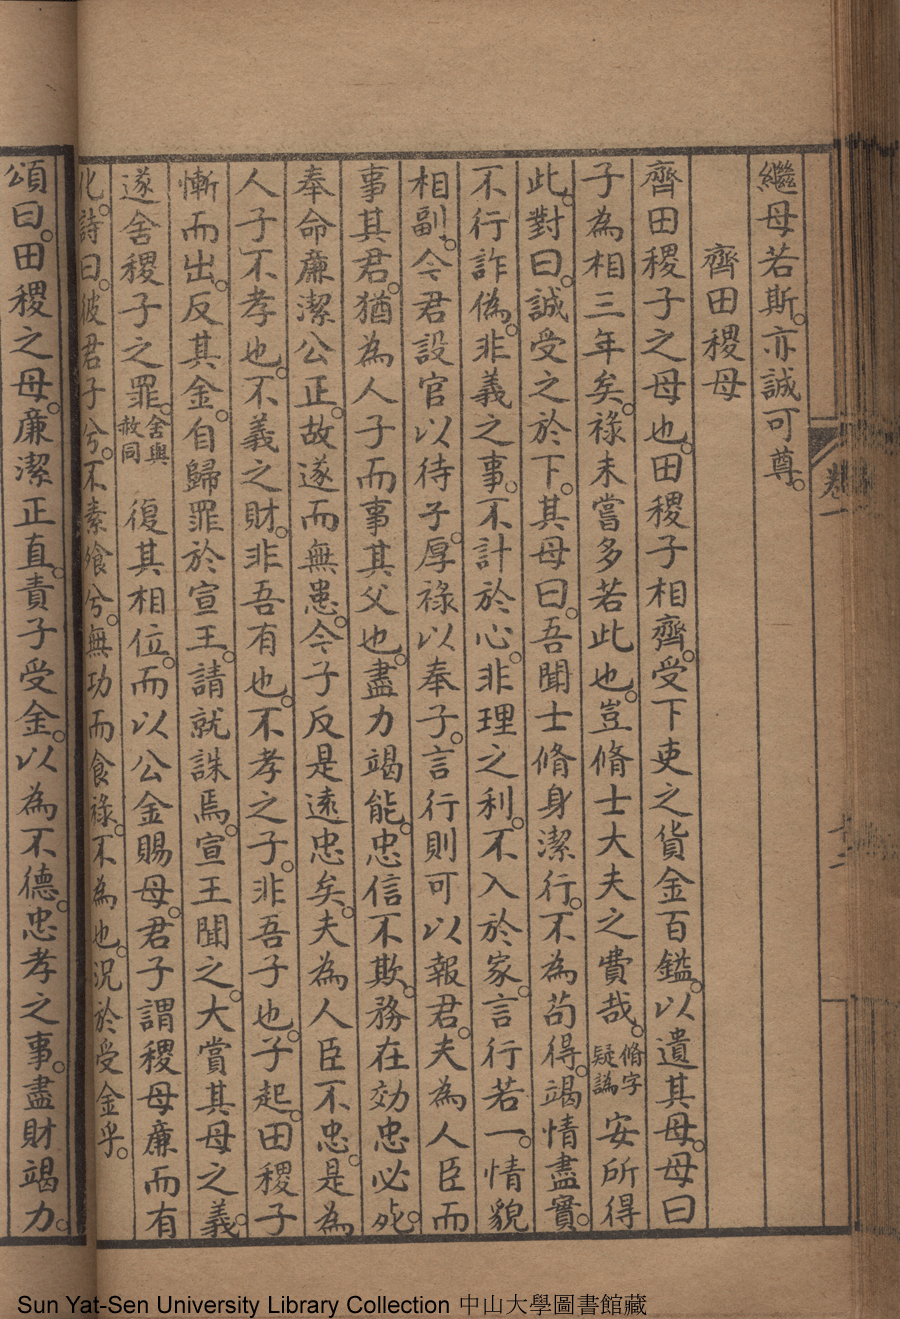 繼母若斯。亦誠可尊。
齊田稷母
齊田稷子之母也。田稷子相齊。受下吏之貨金百鎰。以遺其母。母曰
子為相三年矣。祿未嘗多若此也。豈脩士大夫之費哉。脩字疑譌安所得
此。對曰。誠受之於下。其母曰。吾聞士脩身潔行。不為苟得。竭情盡實。
不行詐偽。非義之事。不計於心。非理之利。不入於家。言行若一。情貌
相副。今君設官以待子。厚祿以奉子。言行則可以報君。夫為人臣而
事其君。猶為人子而事其父也。盡力竭能。忠信不欺。務在効忠必死。
奉命廉潔公正。故遂而無患。今子反是遠忠矣。夫為人臣不忠。是為
人子不孝也。不義之財。非吾有也。不孝之子。非吾子也。子起。田稷子
慚而出。反其金。自歸罪於宣王。請就誅焉。宣王聞之。大賞其母之義。
遂舍稷子之罪。舍與赦同復其相位。而以公金賜母。君子謂稷母廉而有
化。詩曰。彼君子兮。不素飧兮。無功而食祿。不為也。況於受金乎。
頌曰。田稷之母。廉潔正直。責子受金。以為不德。忠孝之事。盡財竭力。
卷一
Sun Yat-Sen University Library Collection 中山大學圖書館藏